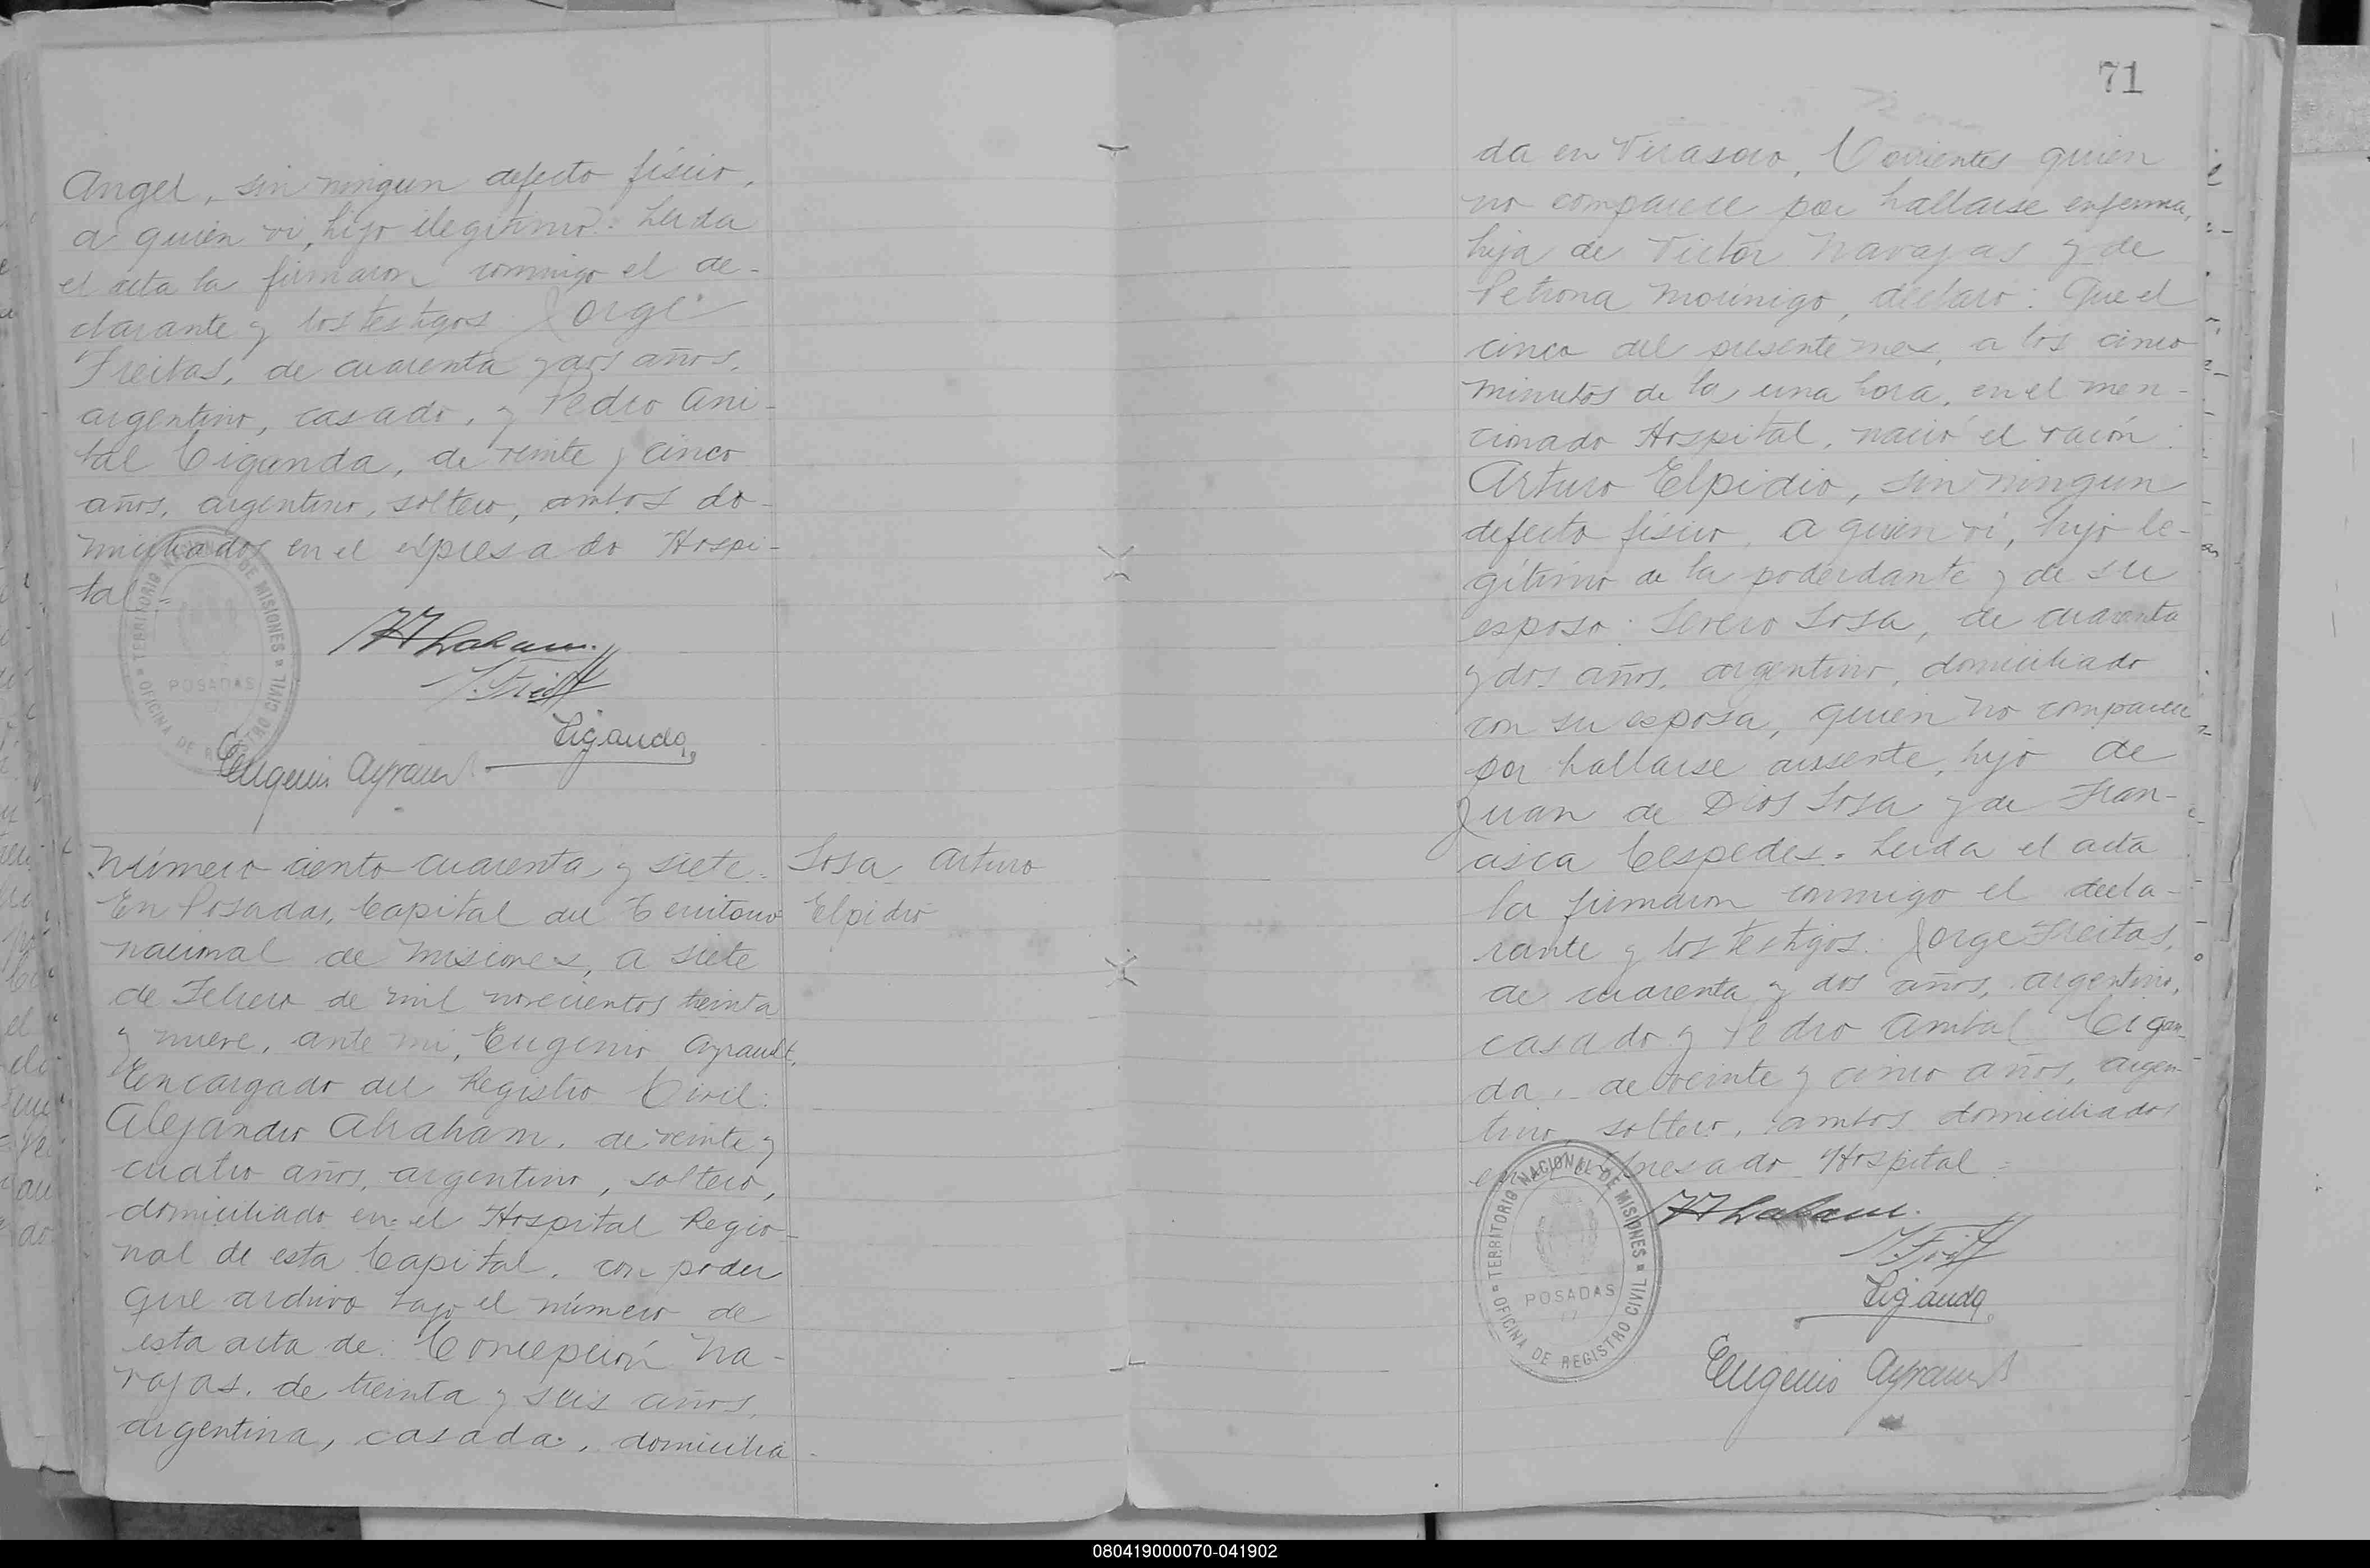 Angel, sin ningun defecto físico,
a quién ví, hijo ilegítimo. Leida
el acta la firmaron conmigo el de-
clarante y los testigos Jorge
Freitas, de cuarenta y dos años,
argentino, casado, y Pedro Aní-
bal Ciganda, de veinte y cinco
años, argentino, soltero, ambos do-
miciliados en el expresado Hospi-
tal =
TERRITORIO NACIONAL DE MISIONES
OFICINA DE REGISTRO CIVIL
POSADAS
Ciganda
Eugenio Ayrault
Número ciento cuarenta y siete.
En Posadas, Capital del Territorio
nacional de Misiones, a siete
de Febrero de mil novecientos treinta
y nueve, ante mí, Eugenio Ayrault,
Encargado del Registro Civil:
Alejandro Ahaham, de veinte y
cuatro años, argentino, soltero,
domiciliado en el Hospital Regio-
nal de esta Capital, con poder
que archivo bajo el número de
esta acta de: Concepción Na-
vajas, de treinta y seis años,
argentina, casada, domicilia-
Sosa Arturo
Elpidio
71
da en Virasoro, Corrientes quién
no comparece por hallarse enferma,
hija de Victor Navajas y de
Petrona Morinigo, declaró: Que el
cinco del presente mes, a los cinco
minutos de la una hora, en el men-
cionado Hospital, nació el varón:
Arturo Elpidio, sin ningun
defecto físico, a quién ví, hijo le-
gítimo de la poderdante y de su
esposo: Severo Sosa, de cuarenta
y dos años, argentino, domiciliado
con su esposa, quién no comparece
por hallarse ausente, hijo de
Juan de Dios Sosa y de Fran-
cisca Cespedes. Leida el acta
la firmaron conmigo el decla-
rante y los testigos: Jorge Freitas,
de cuarenta y dos años, argentino,
casado y Pedro Anibal Cigan-
da, de veinte y cinco años, argen-
tino, soltero, ambos domiciliados
en el expresado Hospital =
TERRITORIO NACIONAL DE MISIONES
OFICINA DE REGISTRO CIVIL
POSADAS
Ciganda
Eugenio Ayrault
080419000070-041902